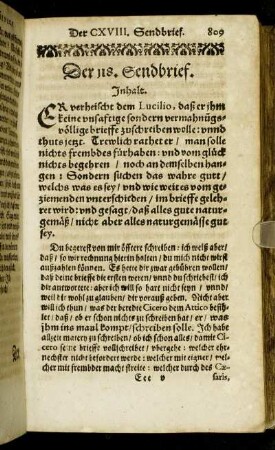 Der CXVIII. Sendbrief. 809
Der 118. Sendbrief.
Inhalt.
ER verheische dem Lucilio, daß er jhm
keine unsafftige sondern vermahnũgs-
völlige brieffe zuschreiben wolle: vnnd
thuts jetzt. Trewlich rathet er / man solle
nichts frembdes fürhaben: vnd vom glück
nichts begehren / noch an demselben han-
gen: Sondern suchen das wahre gutt /
welchs was es sey / vnd wie weit es vom ge-
ziemenden vnterschieden / im brieffe geleh-
ret wird: vnd gesagt / daß alles gute natur-
gemäß / nicht aber alles naturgemässe gut
sey.
Du begerest von mir öftere schreiben: ich weiß aber /
daß / so wir rechnung hierin halten / du mich nicht wirst
außzahlen können. Es hatte dir zwar gebühren wollen /
daß deine brieffe die ersten weren / vnnd du schriebest: ich
dir antwortete: aber ich will so hart nicht seyn / vnnd /
weil dir wohl zu glauben / dir vorauß geben. Nicht aber
will ich thun / was der beredte Cicero dem Attico befih-
let / daß / ob er schon nichts zu schreiben hat / er / was
jhm ins maul kompt / schreiben solle. Ich habe
allzeit matery zu schreiben / ob ich schon alles / damit Ci-
cero seine brieffe vollschreibet / vbergehe: welcher ehe-
nechster nicht befordert werde: welcher mit eigner / wel-
cher mit frembder macht streite: welcher durch des Cæ-
Eee v saris,